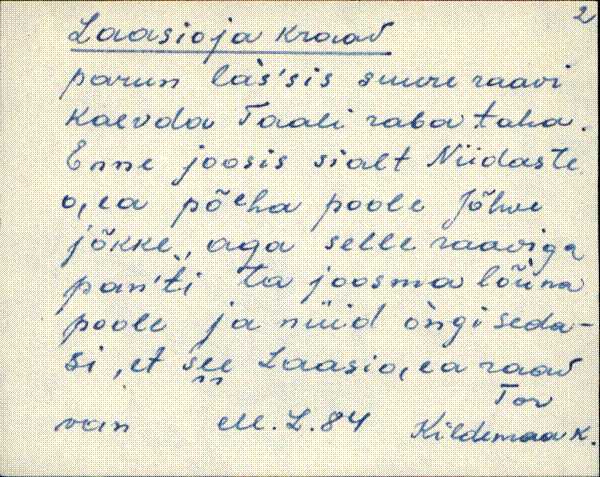 2
Laasioja kraav
parun làs'sis suure raavi
kaevda Taali raba taha.
Enne joosis sialt Niidaste
o,ea põeha poole Jõhve
jõkke, aga selle raaviga
pan'ti ta joosma lõuna
poole ja nüid òngi seda-
si, et see Laasio,ea raav
Tor
van M.L.84 Kildemaa k.